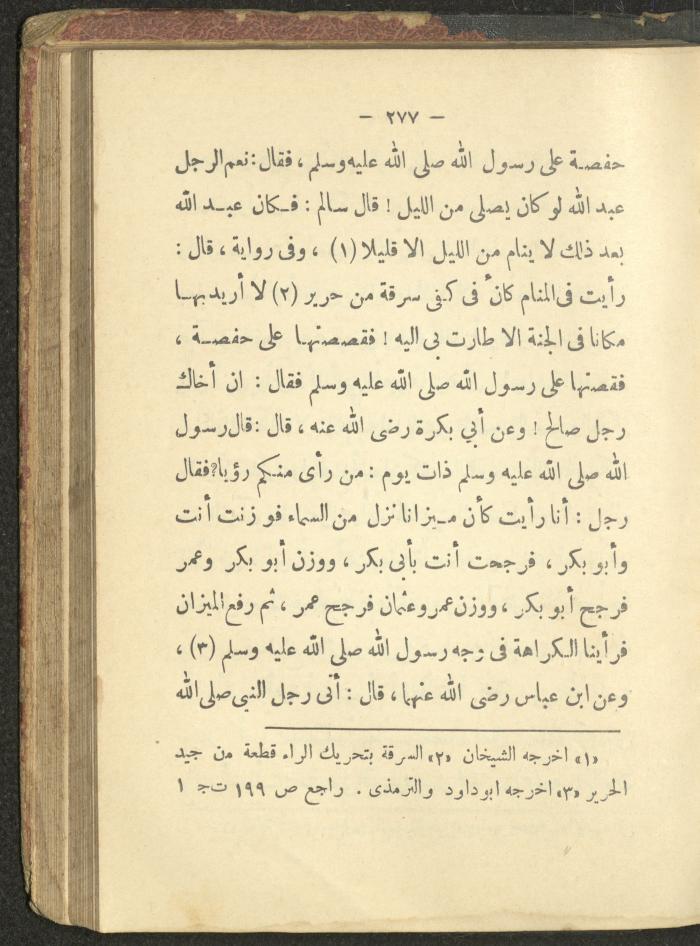 — ٢٧٧ —
حفصة على رسول الله صلى الله عليه وسلم ، فقال : نعم الرجل
عبد الله لو كان يصلى من الليل ! قال سالم : فكان عبد الله
بعد ذلك لا ينام من الليل الا قليلا (١) ، وفى رواية ، قال :
رأيت فى المنام كأن فى كفى سرقة من حرير (٢) لا أريد بها
مكانا فى الجنة الا طارت بى اليه ! فقصصتها على حفصة ،
فقصتها على رسول الله صلى الله عليه وسلم فقال : ان أخاك
رجل صالح ! وعن أبي بكرة رضى الله عنه ، قال : قال رسول
الله صلى الله عليه وسلم ذات يوم : من رأى منكم رؤيا؟ فقال
رجل : أنا رأيت كأن ميزانا نزل من السماء فوزنت أنت
وأبو بكر ، فرجحت أنت بأبى بكر ، ووزن أبو بكر وعمر
فرجح أبو بكر ، ووزن عمر وعثمان فرجح عمر ، ثم رفع الميزان
فرأينا الكراهة فى وجه رسول الله صلى الله عليه وسلم (٣) ،
وعن ابن عباس رضى الله عنهما ، قال : أتى رجل النبي صلى الله
«١» اخرجه الشيخان «٢» السرقة بتحريك الراء قطعة من جيد
الحرير «٣» اخرجه ابو داود والترمذى . راجع ص ١٩٩ ت ج ١